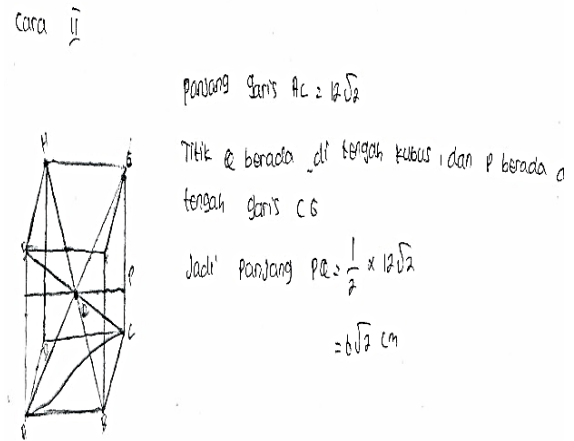 Cara II
Panjang garis AC = 12√2
Titik Q berada di tengah kubus, dan P berada d
tengah garis CG
Jadi panjang PQ = 1/2 × 12√2
= 6√2 cm
H
G
P
Q
C
B